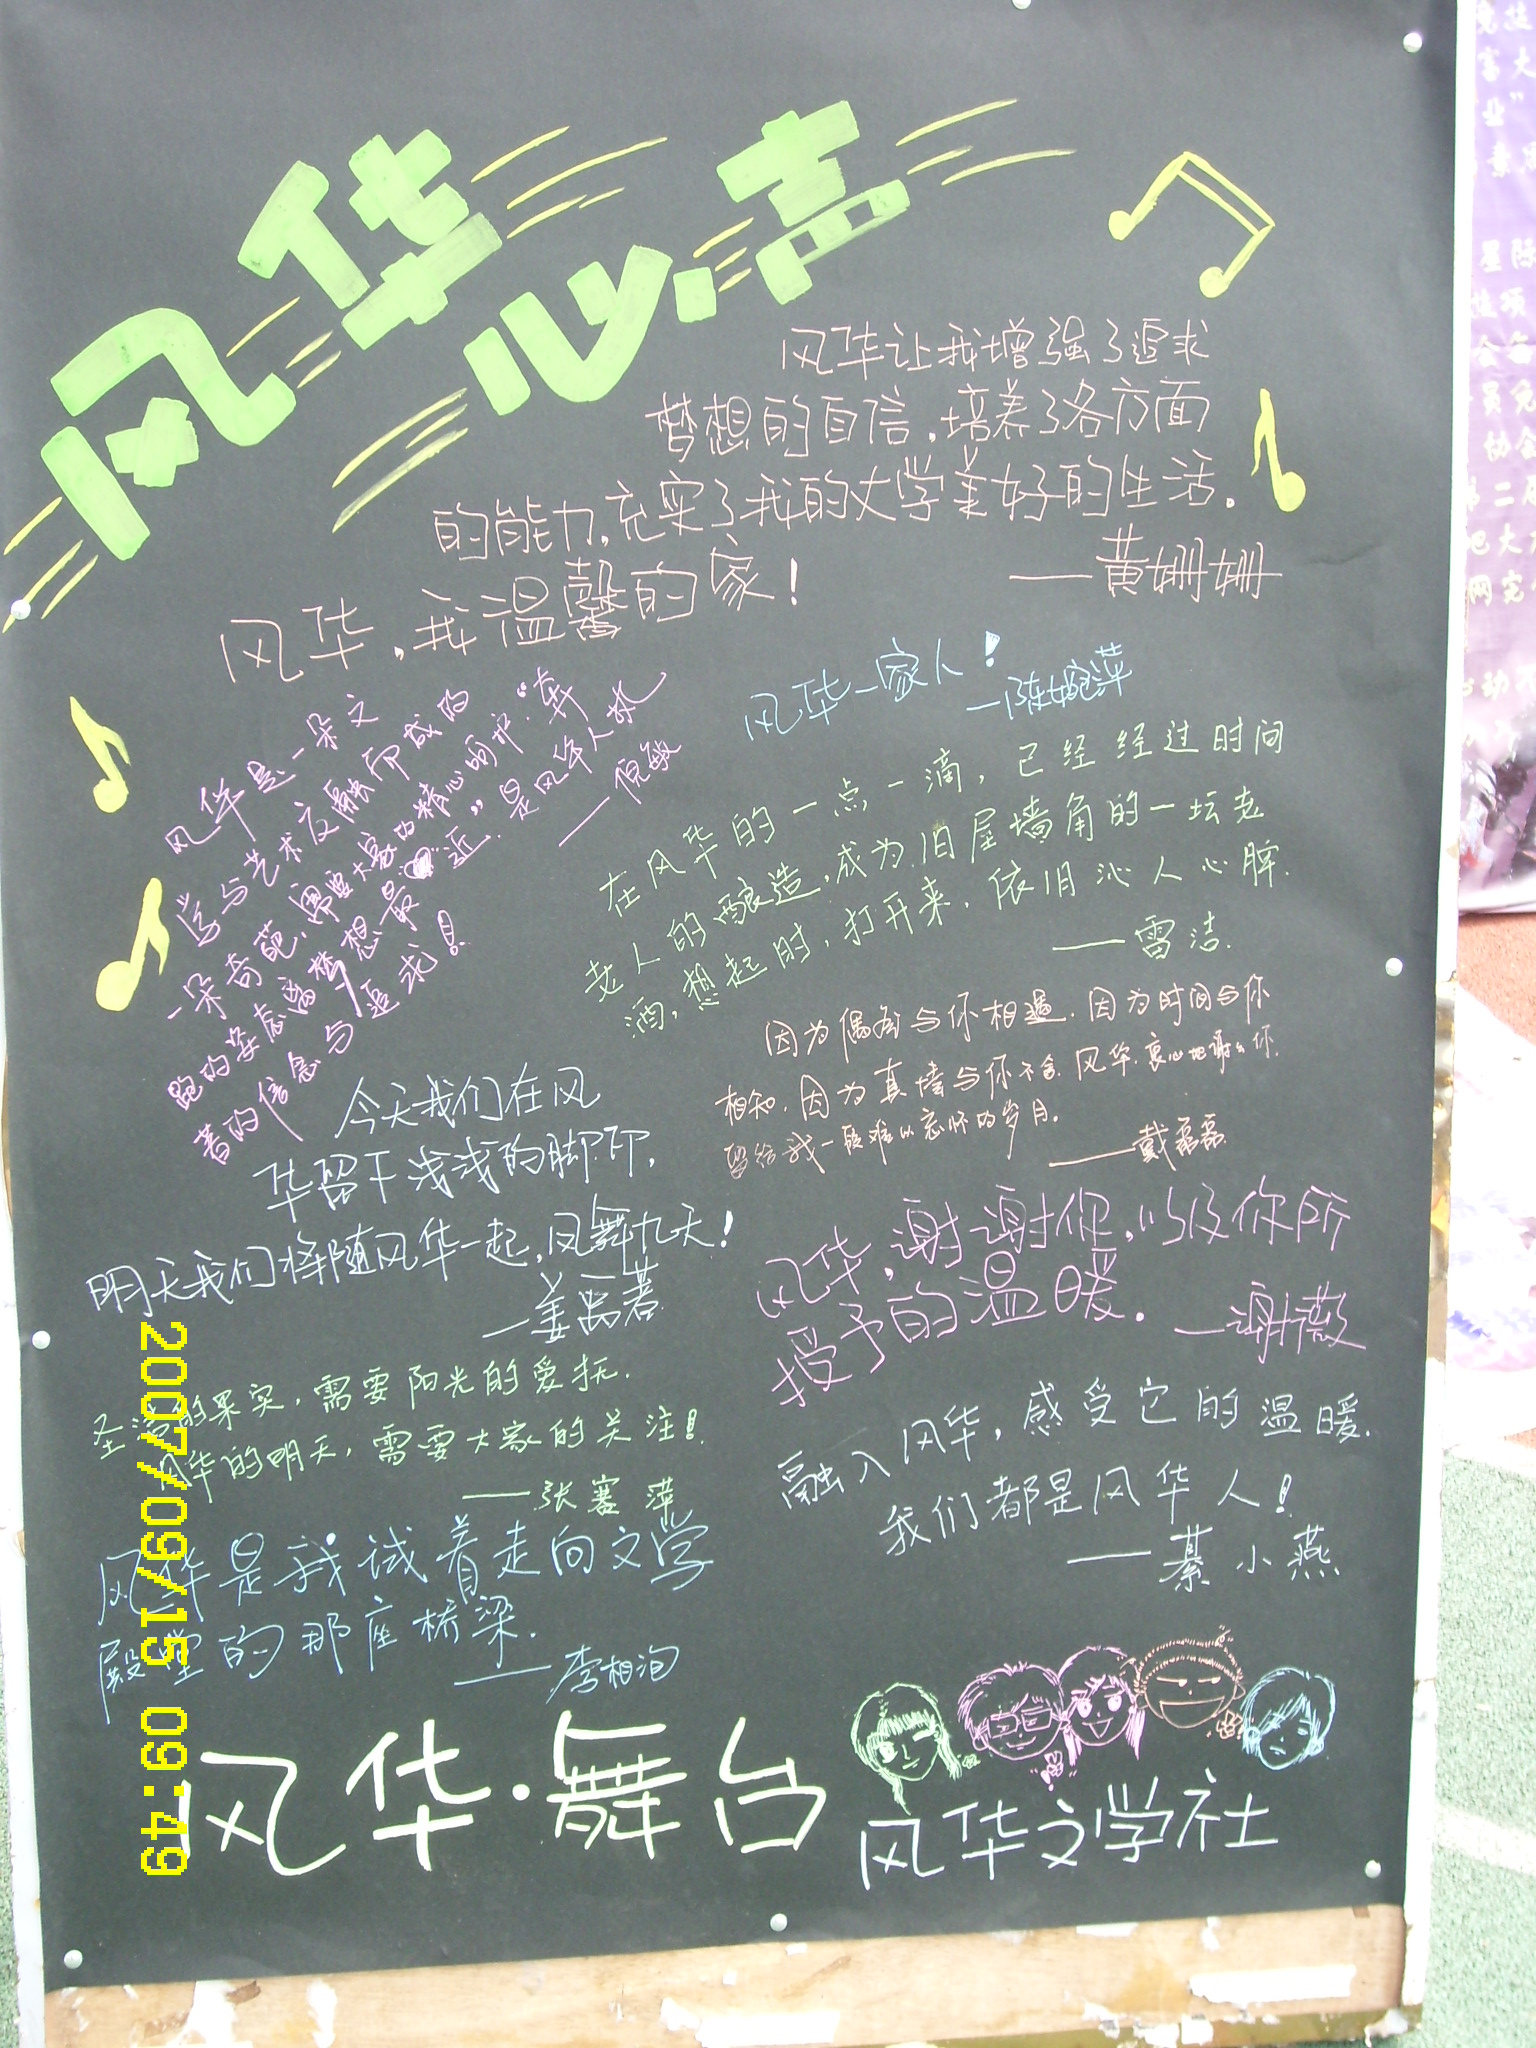 风华心声
风华让我增强了追求
梦想的自信，培养了各方面
的能力，充实了我的大学美好的生活。
——黄姗姗
风华，我温馨的家！
风华一家人！
—陈婉萍
风华是一朵文
学与艺术交融而成的
一朵奇葩，需要大家的精心呵护，“奔
跑的姿态离梦想最近”，是风华人执
着的信念与追求！
——倪敏
在风华的一点一滴，已经经过时间
老人的酿造，成为旧屋墙角的一坛老
酒，想起时，打开来，依旧沁人心脾．
——雷洁
因为偶然与你相遇．因为时间与你
相知．因为真情与你不舍．风华．衷心地谢谢你．
留给我一段难以忘怀的岁月。
——戴磊磊
今天我们在风
华留下浅浅的脚印，
明天我们将随风华一起，风舞九天！
—姜
风华，谢谢你，以及你所
授予的温暖．
—谢薇
圣洁的果实，需要阳光的爱抚．
风华的明天，需要大家的关注！
——张赛萍
融入风华，感受它的温暖．
我们都是风华人！
——綦小燕
风华是我试着走向文学
殿堂的那座桥梁．
——李相洵
风华·舞台
风华文学社
2007/09/15 09:49
星际
协会
第二届